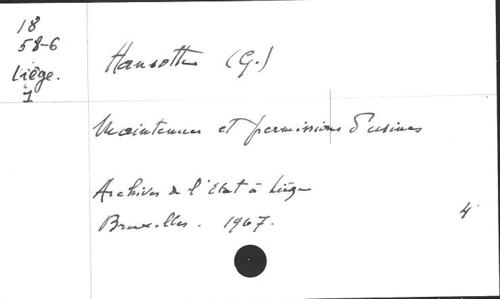 18
58-6
Liège.
1
Hansotte (G.)
Maintenues et permissions d'usines
Archives de l'Etat à Liège
Bruxelles. 1967.
4